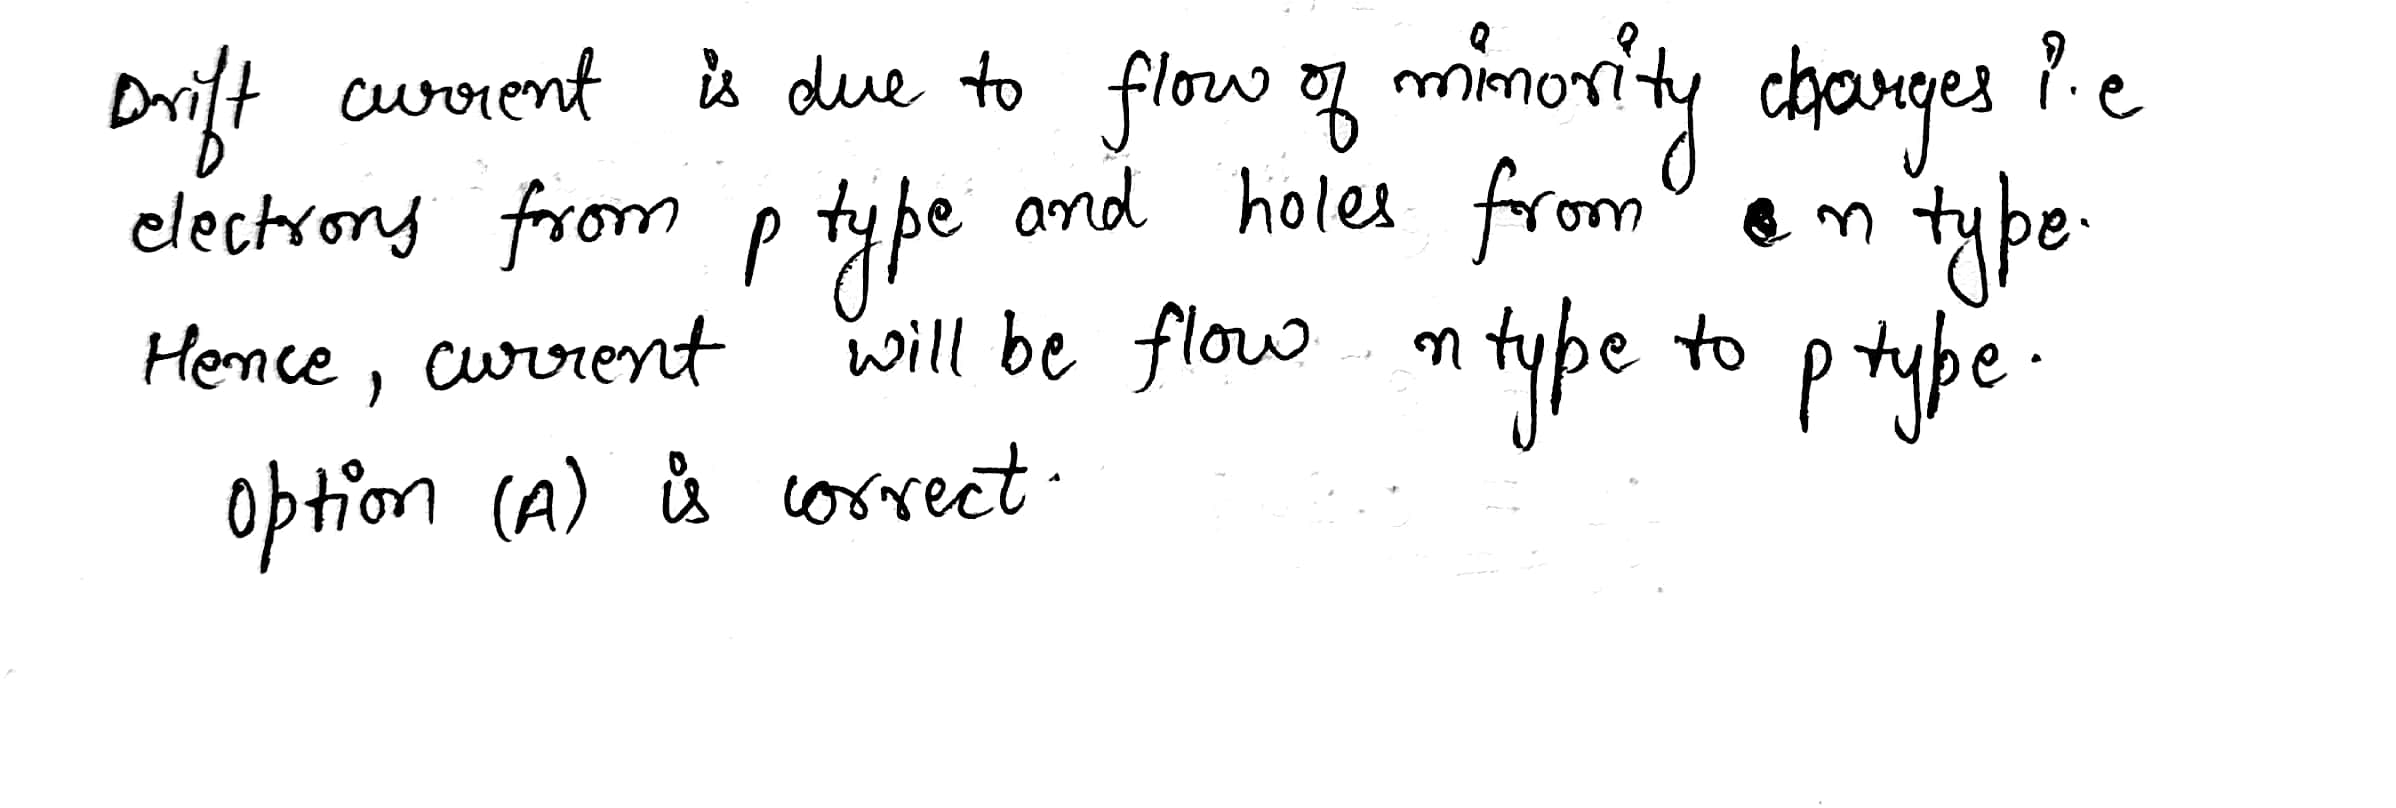 Drift current is due to flow of minority charges i.e
electrons from p type and holes from n type.
Hence, current will be flow n type to p type.
Option (A) is correct.